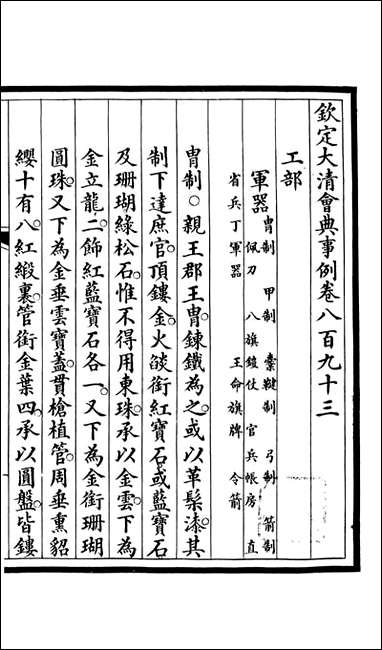 欽定大清會典事例卷八百九十三
工部
軍器 冑制 甲制 櫜鞬制 弓制 箭制
佩刀 八旗鎧仗 官兵帳房 直
省兵丁軍器 王命旗牌 令箭
冑制○親王郡王冑鍊鐵為之或以革髹漆其
制下達庶官頂鏤金火燄銜紅寶石或藍寶石
及珊瑚綠松石惟不得用東珠承以金雲下為
金立龍二飾紅藍寶石各一又下為金銜珊瑚
圓珠又下為金垂雲寶蓋貫槍植管周垂熏貂
纓十有八紅緞裏管銜金葉四承以圓盤皆鏤